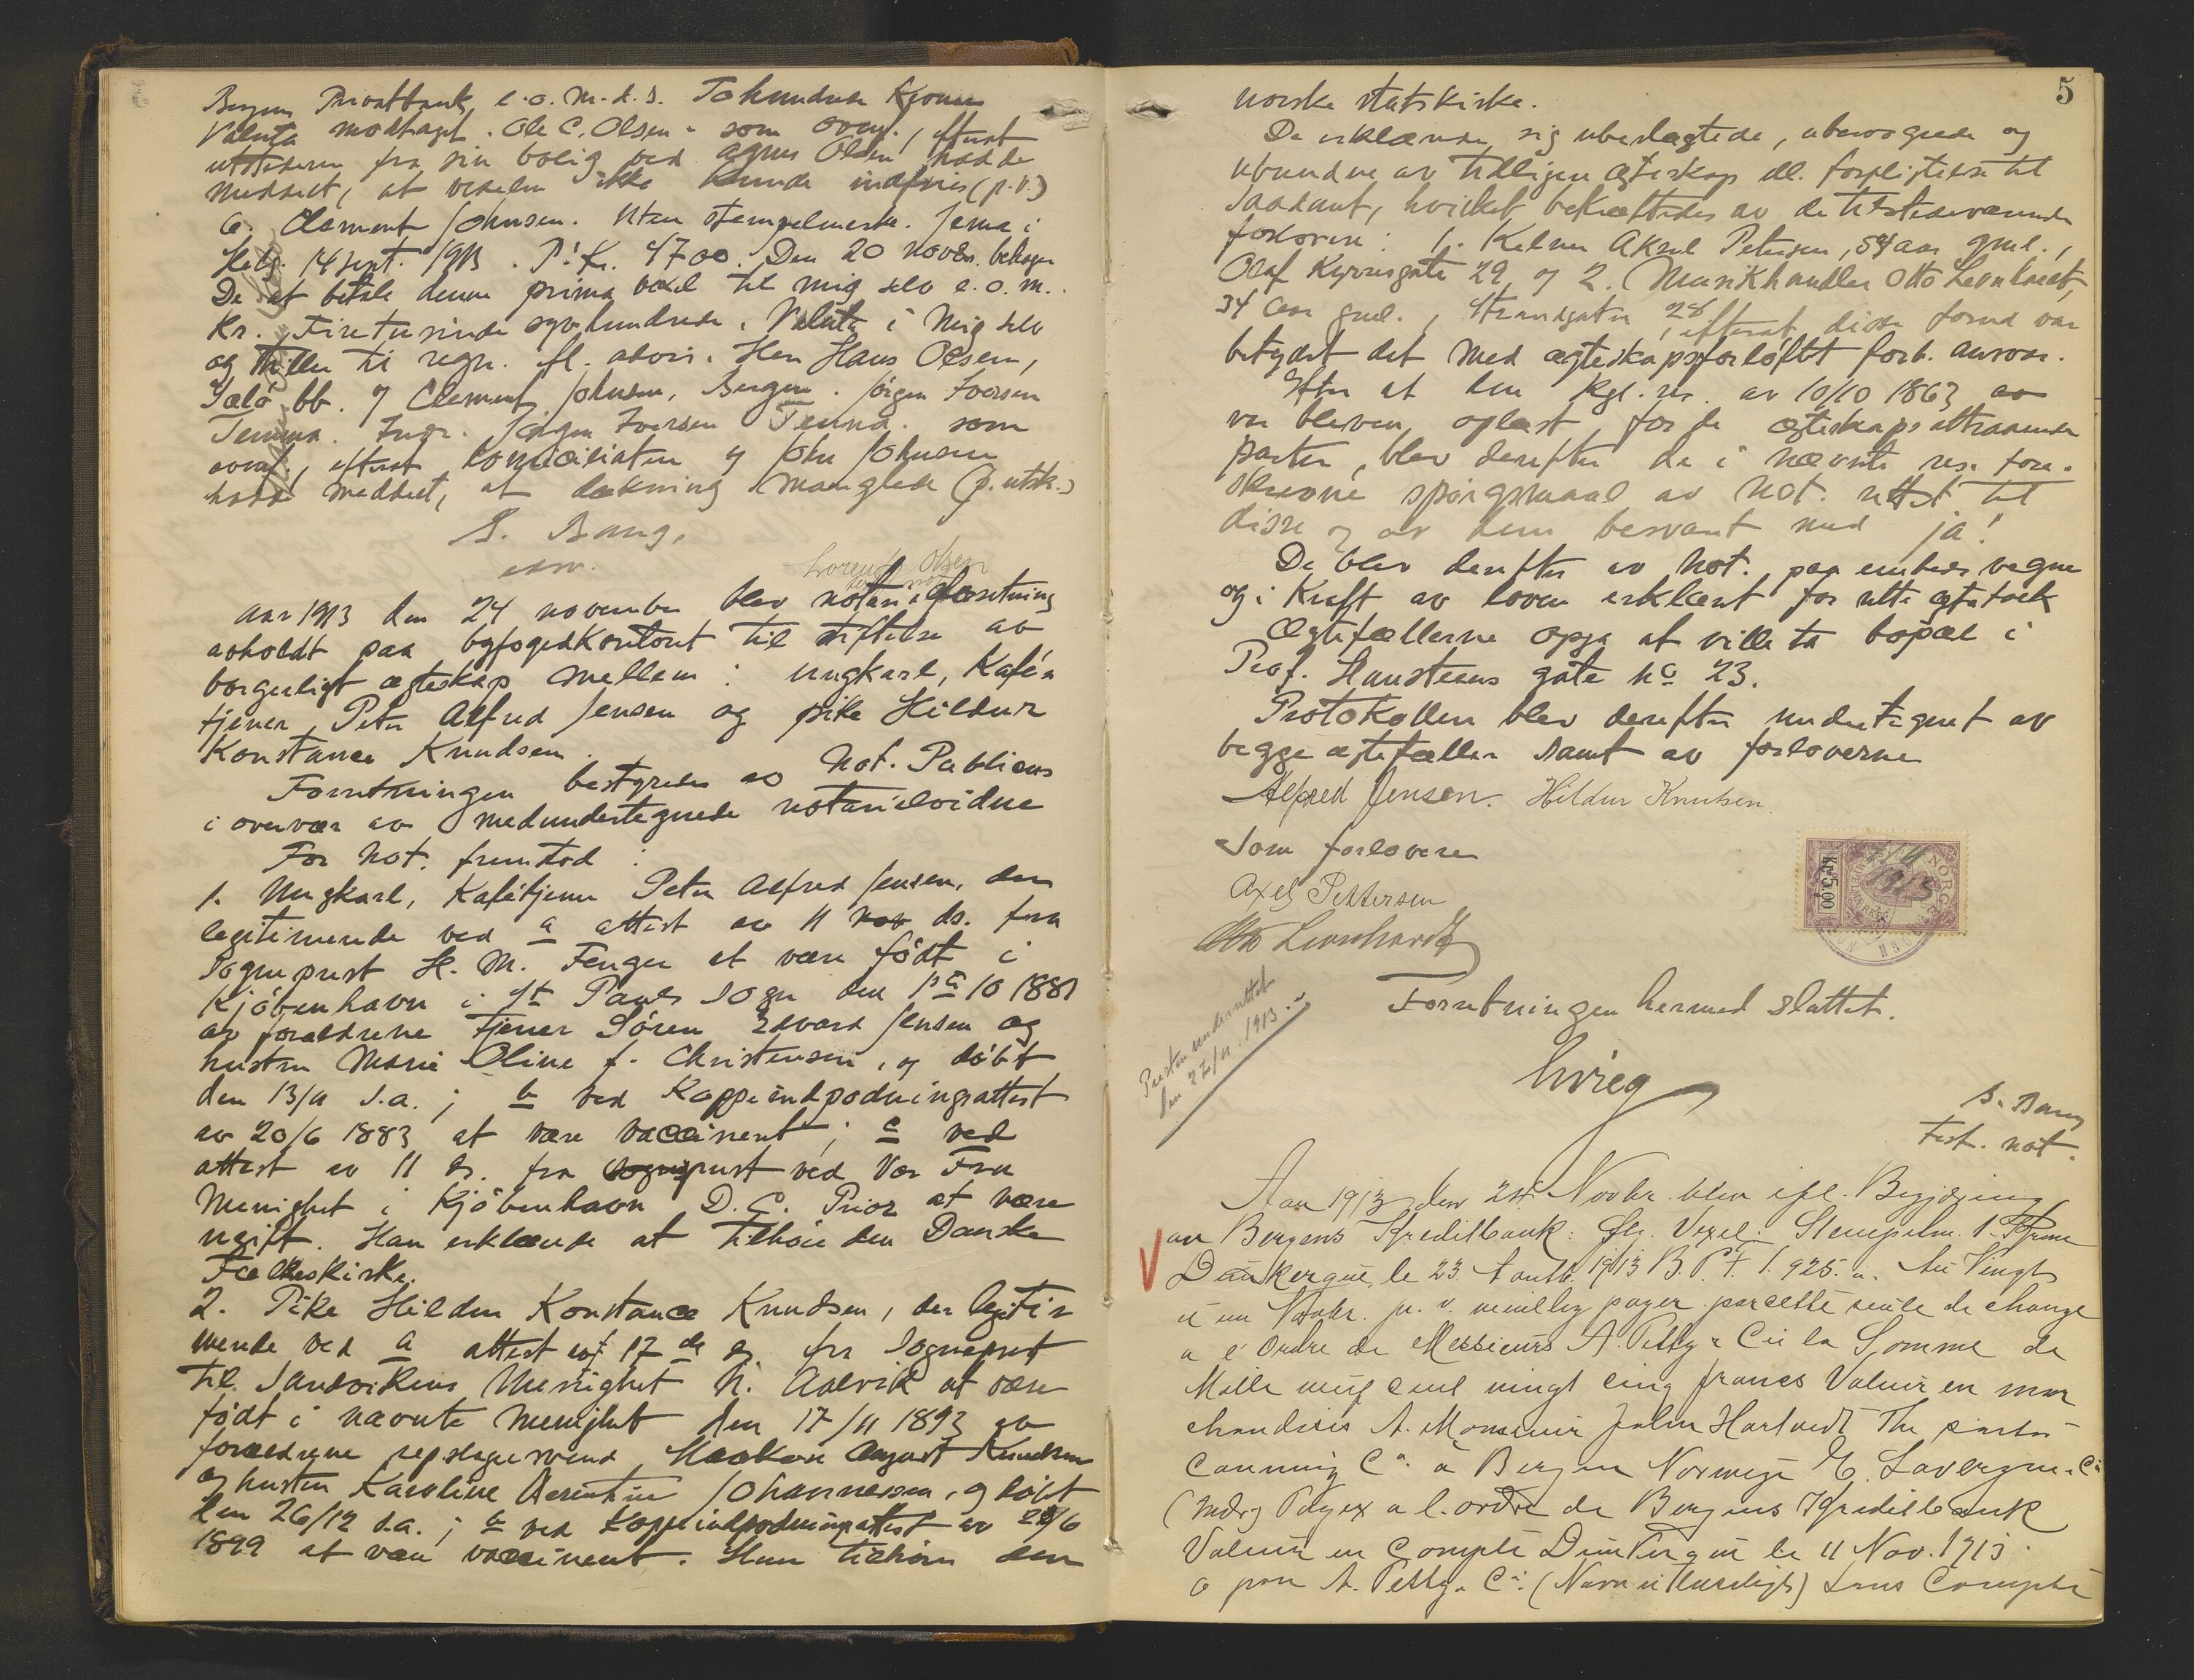 Bergens Privatbank, e. o. m. d. s. Tohundrede Kroner
Valuta modtaget. Ole C. Olsen - som ovenf., efterat
utstederen fra sin bolig ved Agnes Olsen hadde
meddelt, at vexelen ikke kunde indfries (p. v.)
a. Clement Johnsen. Uten stempelmerke. Jema i
Helg. 14 sept. 1913. P! Kr. 4700. Den 20 novbr. behager
De at betale denne prima vexel til mig selv e. o. m.
Kr. Firetusinde syvhundrede. Valuta i mig selv
og stiller til regn. efl. advis. Herr Hans Olsen,
Kr. Clement Johnsen, Bergen. Jörgen Iversen
Jenna. Indr. Jörgen Iversen Jenna. som
ovenf., efterat domiciliaten og John Johnsen
hadde meddelt, at dækning manglede (p. utsk.)
S. Bang.
Lorentz Olsen
Aar 1913 den 24 november blev notarialforretning
avholdt paa byfogedkontoret til stiftelse av
borgerligt egteskap mellem: ungkarl, Kafé-
tjener Peter Alfred Jensen og pike Hildur
Konstance Knudsen.
Forretningen bestyredes av Not. Publicus
i overvær av medundertegnede notarialvidne
For Not. fremstod:
1. Ungkarl, Kafétjener Peter Alfred Jensen, der
legitimerede ved a attest av 11 nov ds. fra
Sogneprest H. M. Fenger at være född i
Kjöbenhavn i St Pauls Sogn den 1ste 10 1881
av forældrene Tjener Sören Edvard Jensen og
hustru Marie Oline f. Christensen, og döbt
den 13/11 s.a.; b ved Koppeindpodningsattest
av 20/6 1883 at være vaccineret; c ved
attest av 11 ds. fra sogneprest ved Vor Frue
Menighet i Kjöbenhavn D. C. Prior at være
ugift. Han erklærede at tilhöre den Danske
Folkekirke.
2. Pike Hildur Konstance Knudsen, der legiti-
merede ved a attest av 17 de ds fra Sogneprest
til Sandvikens Menighet N. Aalvik at være
född i nævnte menighet den 17/11 1893 av
forældrene repslagersvend Haakon August Knudsen
og hustru Karoline Berentine Johannessen, og döbt
den 26/12 s.a.; b ved Koppeindpodningsattest av 28/6
1899 at være vaccineret. Hun tilhörer den
5
norske statskirke.
De erklærede sig ubeslegtede, ubesvogrede og
ubundne av tidligere egteskap ell. forpligtelse til
saadant, hvilket bekræftedes av de tilstedeværende
forlovere: 1. Kelner Aksel Petersen, 54 aar gml.,
Olaf Kyrresgate 29 og 2. Musikhandler Otto Leonhardt,
34 aar gml., Strandgaten 28, efterat disse forud var
betydet det med egteskapsforløftet forb. ansvar.
Efter at den kgl. res. av 10/10 1863 av
var bleven oplæst for de egteskapsattraaende
parter, blev derefter de i nævnte res. fore-
skrevne spörgsmaal av Not. rettet til
disse og av dem besvaret med ja!
De blev derefter av Not. paa embeds vegne
og i Kraft av loven erklæret for rette egtefolk
Egtefællerne opga at ville ta bopæl i
Prof. Hansteens gate no 23.
Protokollen blev derefter undertegnet av
begge egtefæller samt av forloverne
Alfred Jensen. Hildur Knutsen.
Som forlovere
Axel Pettersen
Otto Leonhardt
NORGE
Kr. 5.00
1913
Presten underrettet
den 27/11. 1913.
Forretningen hermed sluttet.
S. Bang
Test. not.
Aar 1913 den 24. Novbr. blev efl. Begjæring
av Bergens Kreditbank: Flg. Vexel: Stempelm. 1. Krone
Dunkerque, le 23. Aout 1913 B. P. F. 1.925. Au Vingt
et un Novbr. p. v. veuillez payer par cette seule de change
a l'Ordre de Messieurs A. Petty & Cie la Somme de
Mille neuf cent vingt cinq francs Valeur en mar
chandises A. Monsieur John Hartvedt The
Canning Co. à Bergen Norwège E. Lavergne & Cie
Payez a l. ordre de Bergens Kreditbank
Valeur en Compte Dunkerque le 11 Nov. 1913.
p. pon A. Petty & Cie. (Navn ulæseligt) Sans Compte